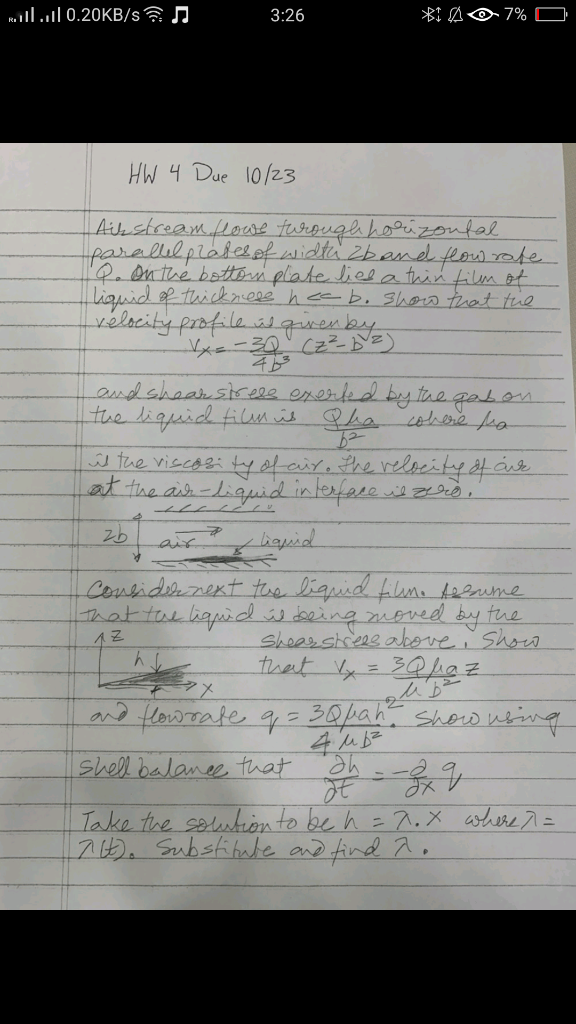 0.20KB/s 3:26 7%
HW 4 Due 10/23
Air stream flows through horizontal
parallel plates of width 2b and flow rate
Q. On the bottom plate lies a thin film of
liquid of thickness h << b. Show that the
velocity profile is given by
Vx = -3Q/4b³ (z² - b²)
and shear stress exerted by the gas on
the liquid film is Qμa/b² where μa
is the viscosity of air. The velocity of air
at the air-liquid interface is zero.
2b air liquid
Consider next the liquid film. Assume
that the liquid is being moved by the
z shear stress above. Show
h that Vx = 3Qμa z/μb²
x
and flow rate q = 3Qμah²/4μb². Show using
shell balance that ∂h/∂t = -∂/∂x q
Take the solution to be h = λ.x where λ =
λ(t). Substitute and find λ.